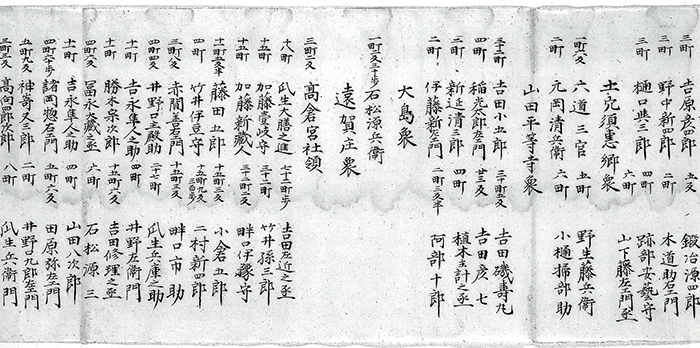 三町 吉原彦四郎 五反 鍛冶源四郎
三町 野中新四郎 二町 木道助右衛門
三町 樋口与三郎 四町 跡部安藝守
土穴須惠郷衆 六町 山下藤左衛門丞
一町六反 六道三官 五反 野生藤兵衛
元岡清兵衛 六町 小樋掃部助
山田平等寺衆
吉田小五郎 三十町五反 吉田磯壽丸
四町 廿三反 吉田彦七
四町 新延清三郎 四町 植木主計之丞
二町 伊藤新三郎 二町三反半 阿部十郎
大島衆
石松源兵衛
遠賀庄衆
三町二反 高倉宮社領
十八町 瓜生大膳之進 吉田左近之丞
十五町 加藤壹岐守 竹井孫三郎
十五町 加藤新藏人 畔口伊豫守
藤田五郎 十町 小倉五郎
十町 竹井伊豆守 二村新四郎
三町八反 赤間善右衛門 十五町三反 畔口市助
四町四反 井野口主殿助 三十七町 瓜生兵庫之助
十町 吉永隼人之助 四町 井野左衛門
十一町 勝木泉次郎 十五町六反 吉田修理之丞
四町六反 冨永大藏之丞 六町 石松源三
十一町 吉永隼人之助 八町 山田八次郎
諸岡惣右衛門 五町六反 田原弥左衛門
五町九反 神嵜又三郎 二町 井野九郎左衛門
三町三反 高向四郎次郎 八町 瓜生兵衛門